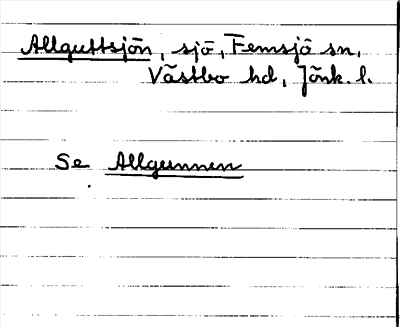 Allguttsjön, sjö, Femsjö sn,
Västbo hd, Jönk. l.
Se Allgunnen